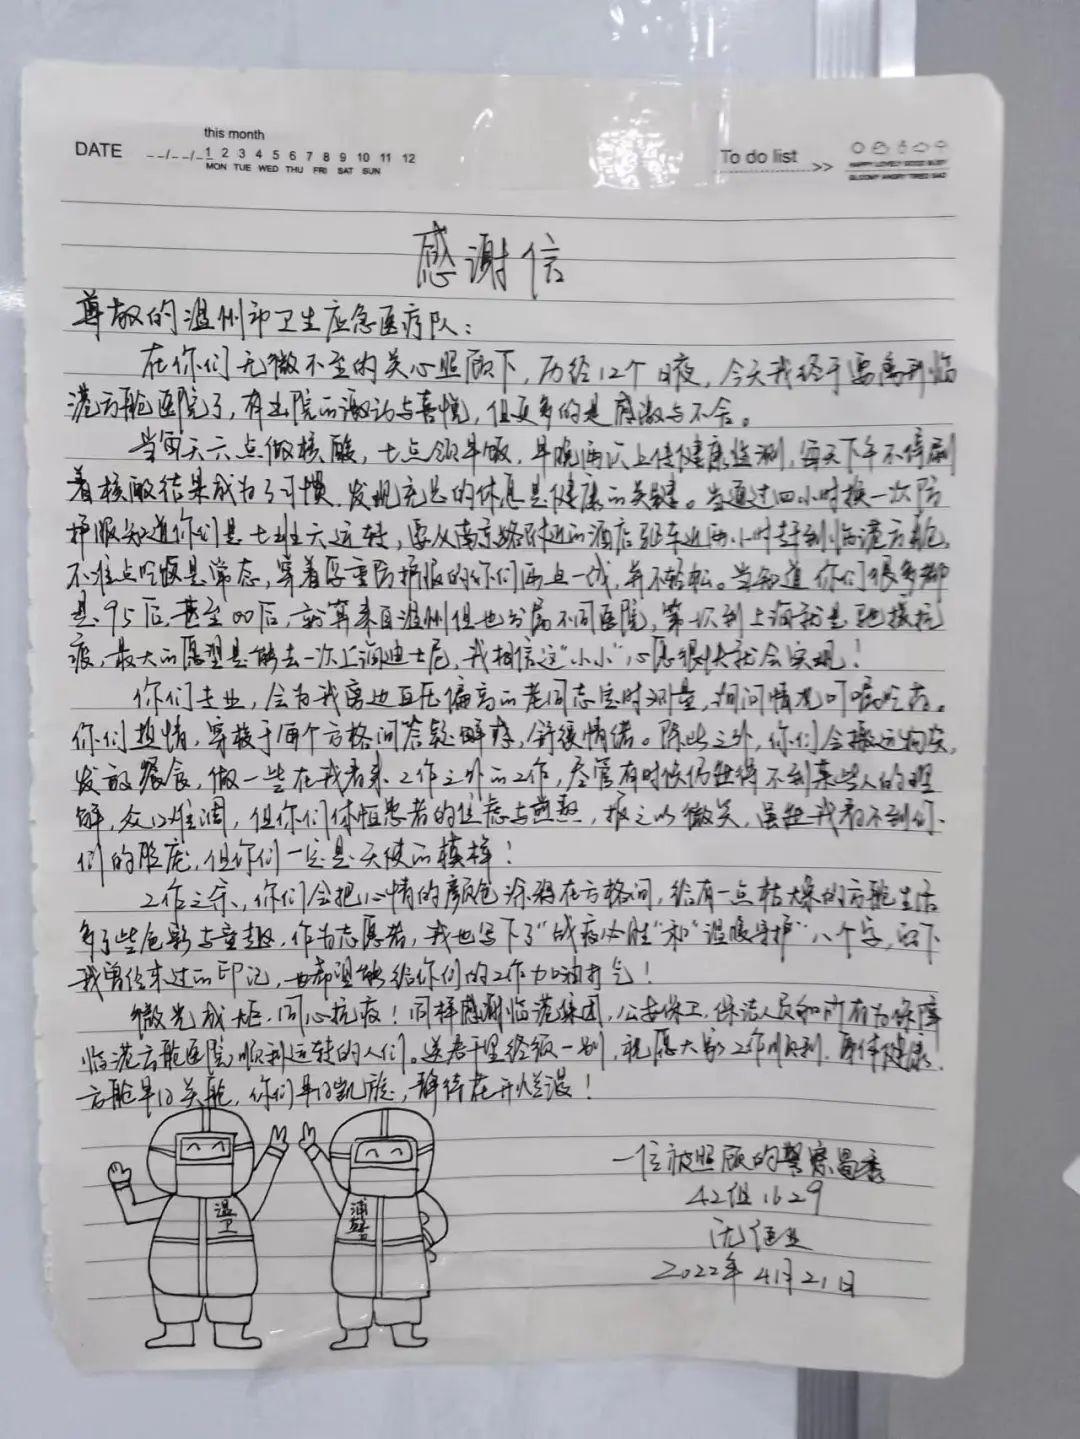 DATE
this month
--/--/- 1 2 3 4 5 6 7 8 9 10 11 12
MON TUE WED THU FRI SAT SUN
To do list >>
HAPPY LOVELY GOOD BUSY
GLOOMY ANGRY TIRED SAD
感谢信
尊敬的温州市卫生应急医疗队：
在你们无微不至的关心照顾下，历经12个日夜，今天我终于要离开临
港方舱医院了，有出院的激动与喜悦，但更多的是感激与不舍。
当每天六点做核酸，七点领早饭，早晚两次上传健康监测，每天下午不停刷
着核酸结果成为了习惯，发现充足的休息是健康的关键。当通过四小时换一次防
护服知道你们是七班六运转，要从南京路附近的酒店驱车近两小时赶到临港方舱，
不准点吃饭是常态，穿着厚重防护服的你们两点一线，并不轻松。当知道你们很多都
是95后甚至00后，就算来自温州但也分属不同医院，第一次到上海就是驰援抗
疫，最大的愿望是能去一次上海迪士尼，我相信这“小小”心愿很快就会实现！
你们专业，会为我旁边血压偏高的老同志定时测量，询问情况叮嘱吃药。
你们热情，穿梭于每个方格间答疑解惑，舒缓情绪。除此之外，你们会搬运物资，
发放餐食，做一些在我看来工作之外的工作，尽管有时候仍然得不到某些人的理
解，众口难调，但你们体恤患者的焦虑与煎熬，报之以微笑，虽然我看不到你
们的脸庞，但你们一定是天使的模样！
工作之余，你们会把心情的颜色涂抹在方格间，给有一点枯燥的方舱生活
多了些色彩与童趣，作为志愿者，我也写下了“战疫必胜”和“温暖守护”八个字，留下
我曾经来过的印记，也希望能给你们的工作加油打气！
微光成炬，同心抗疫！同样感谢临港集团，公安保卫，保洁人员和所有为保障
临港方舱医院顺利运转的人们。送君千里终须一别，祝愿大家工作顺利，身体健康，
方舱早日关舱，你们早日凯旋，静待花开烂漫！
温卫
浦警
一位被照顾的警察
42组1629
2022年4月21日